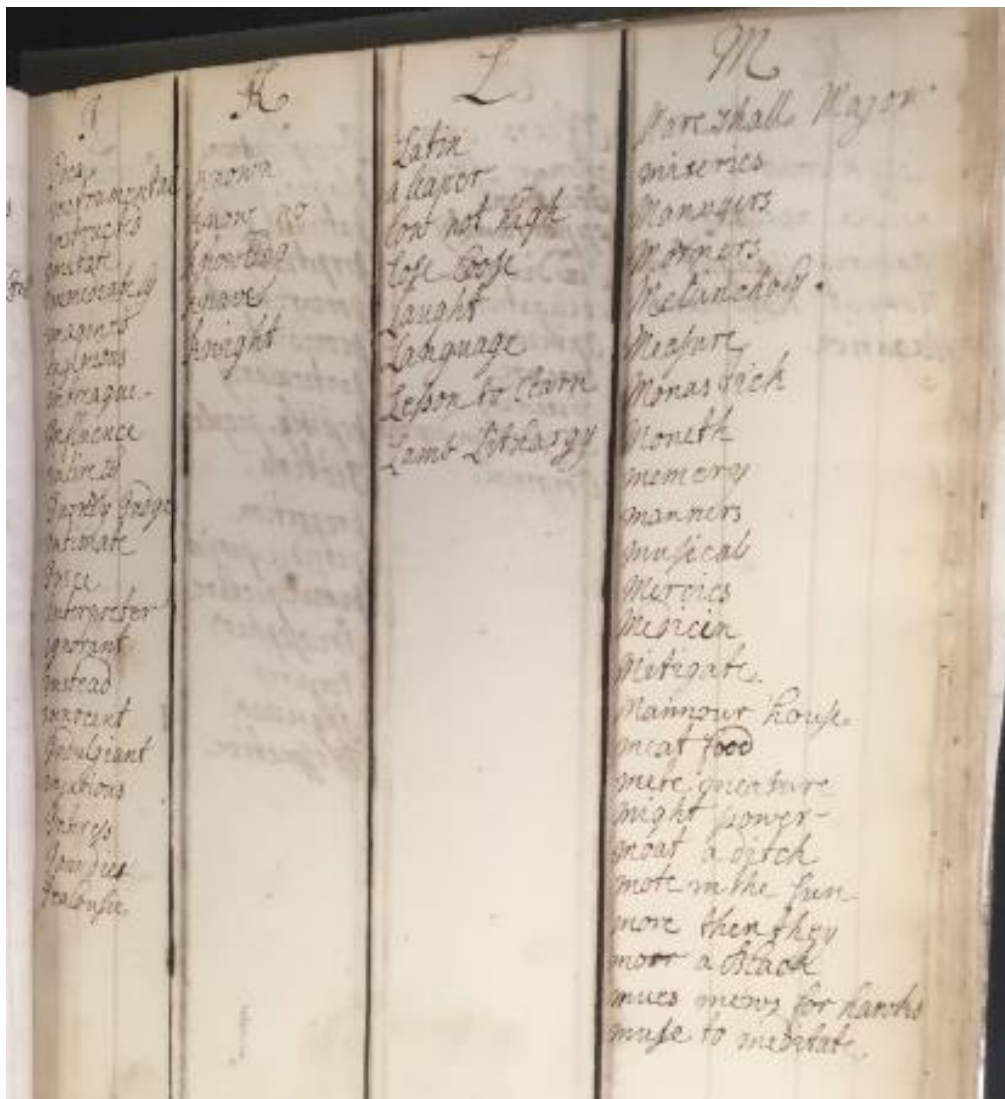 I
Joies
instrumental
instructs
imitate
incourage
imagens
ingenious
intrague
Influence
indirets
Inordly Judge
intimate
Juice
interpreter
ignorant
instead
innocent
Indulgeant
Intress
Jealousie
K
known
know no
knowledg
knave
knight
L
Latin
a Laper
low not high
Lose Loose
Laught
Language
Lesson to learn
Lamb Lithargy
M
Mareshall Major
miseries
Managers
Morners
Melancholy.
Measure
Monastick
Moneth
memory
manners
musical
Mercies
Medicin
Mitigate.
Mannour house
meat food
mete measure
might power-
moat a ditch
mote in the sun
more then they
moor a Black
mues mews for hawks
muse to meditate.